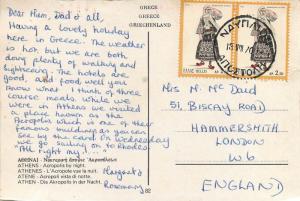 GRECE
GREECE
GRIECHENLAND
Dear Mam, Dad & all,
Having a lovely holiday
here in Greece. The weather
is hot but we are both
doing plenty of walking and
sightseeing. The hotels are
good, and food, well you
know what I think of three
course meals. While we
were in Athens we visited
a place known as the
Acropolis which is one of their
famous buildings as you can
see by the card. On Wednesday
we go sailing on to Rhodes.
All right my ....
Margaret &
Rosemary
ΑΘΗΝΑΙ - Νυκτερινή άποψις Ἀκροπόλεως
ATHENS - Acropolis by night.
ATHENES - L'Acropole vue la nuit.
ATENE - Acropoli vista di notte.
ATHEN - Die Akropolis in der Nacht.
82
ΝΑΥΠΛΙΟΝ
ΕΛΛΑΣ HELLAS
Mrs N. Mc Daid
51, BISCAY ROAD
HAMMERSMITH
LONDON
W6
ENGLAND